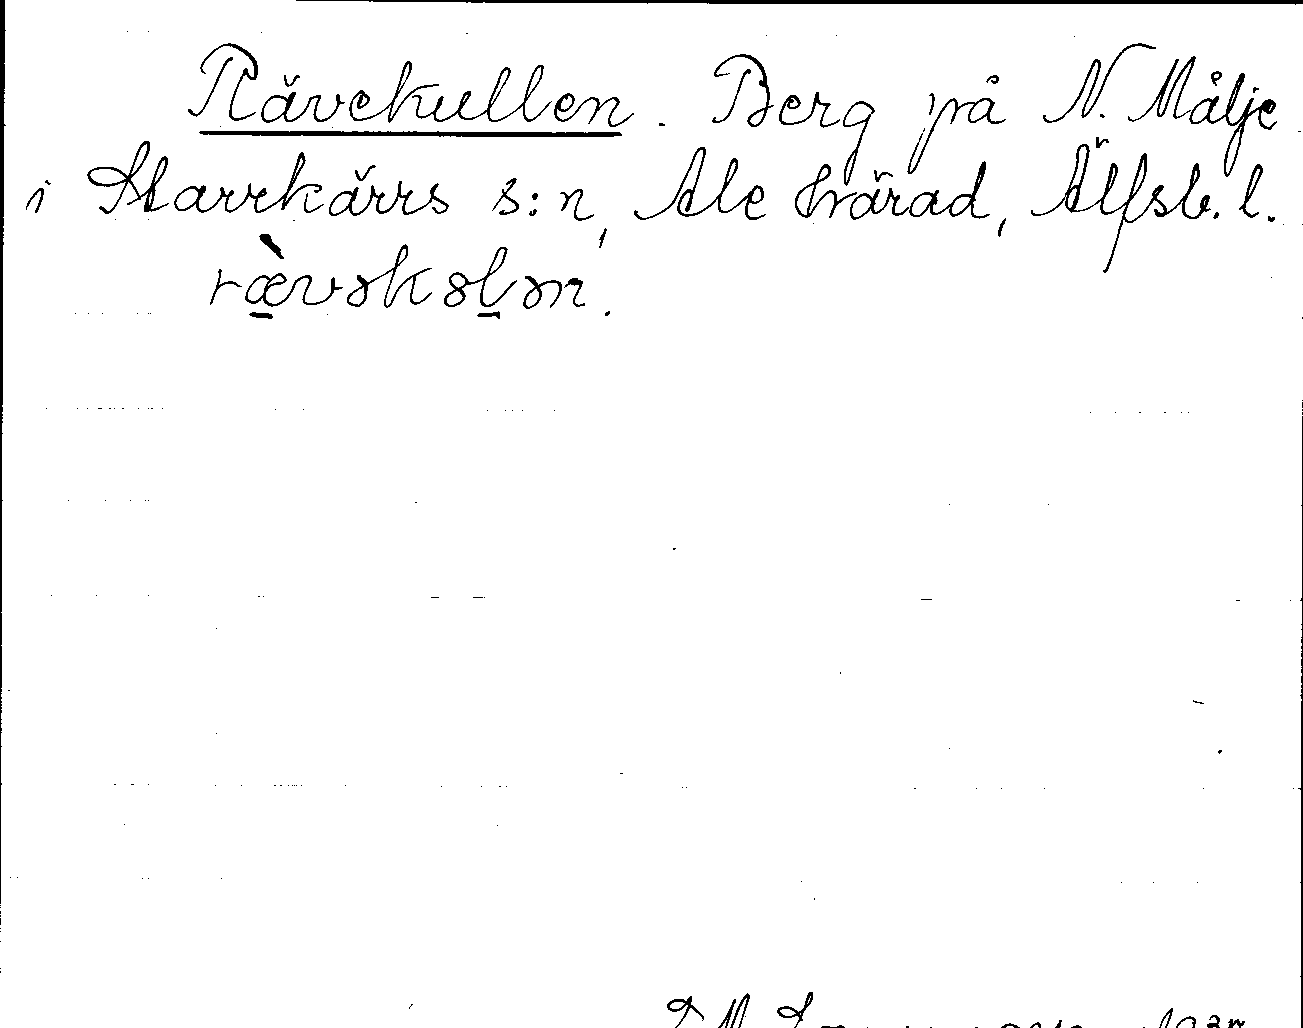 Rävekullen. Berg på N. Målje
i Starrkärrs s:n, Ale härad, Älfsb. l.
rævəkɵlən.